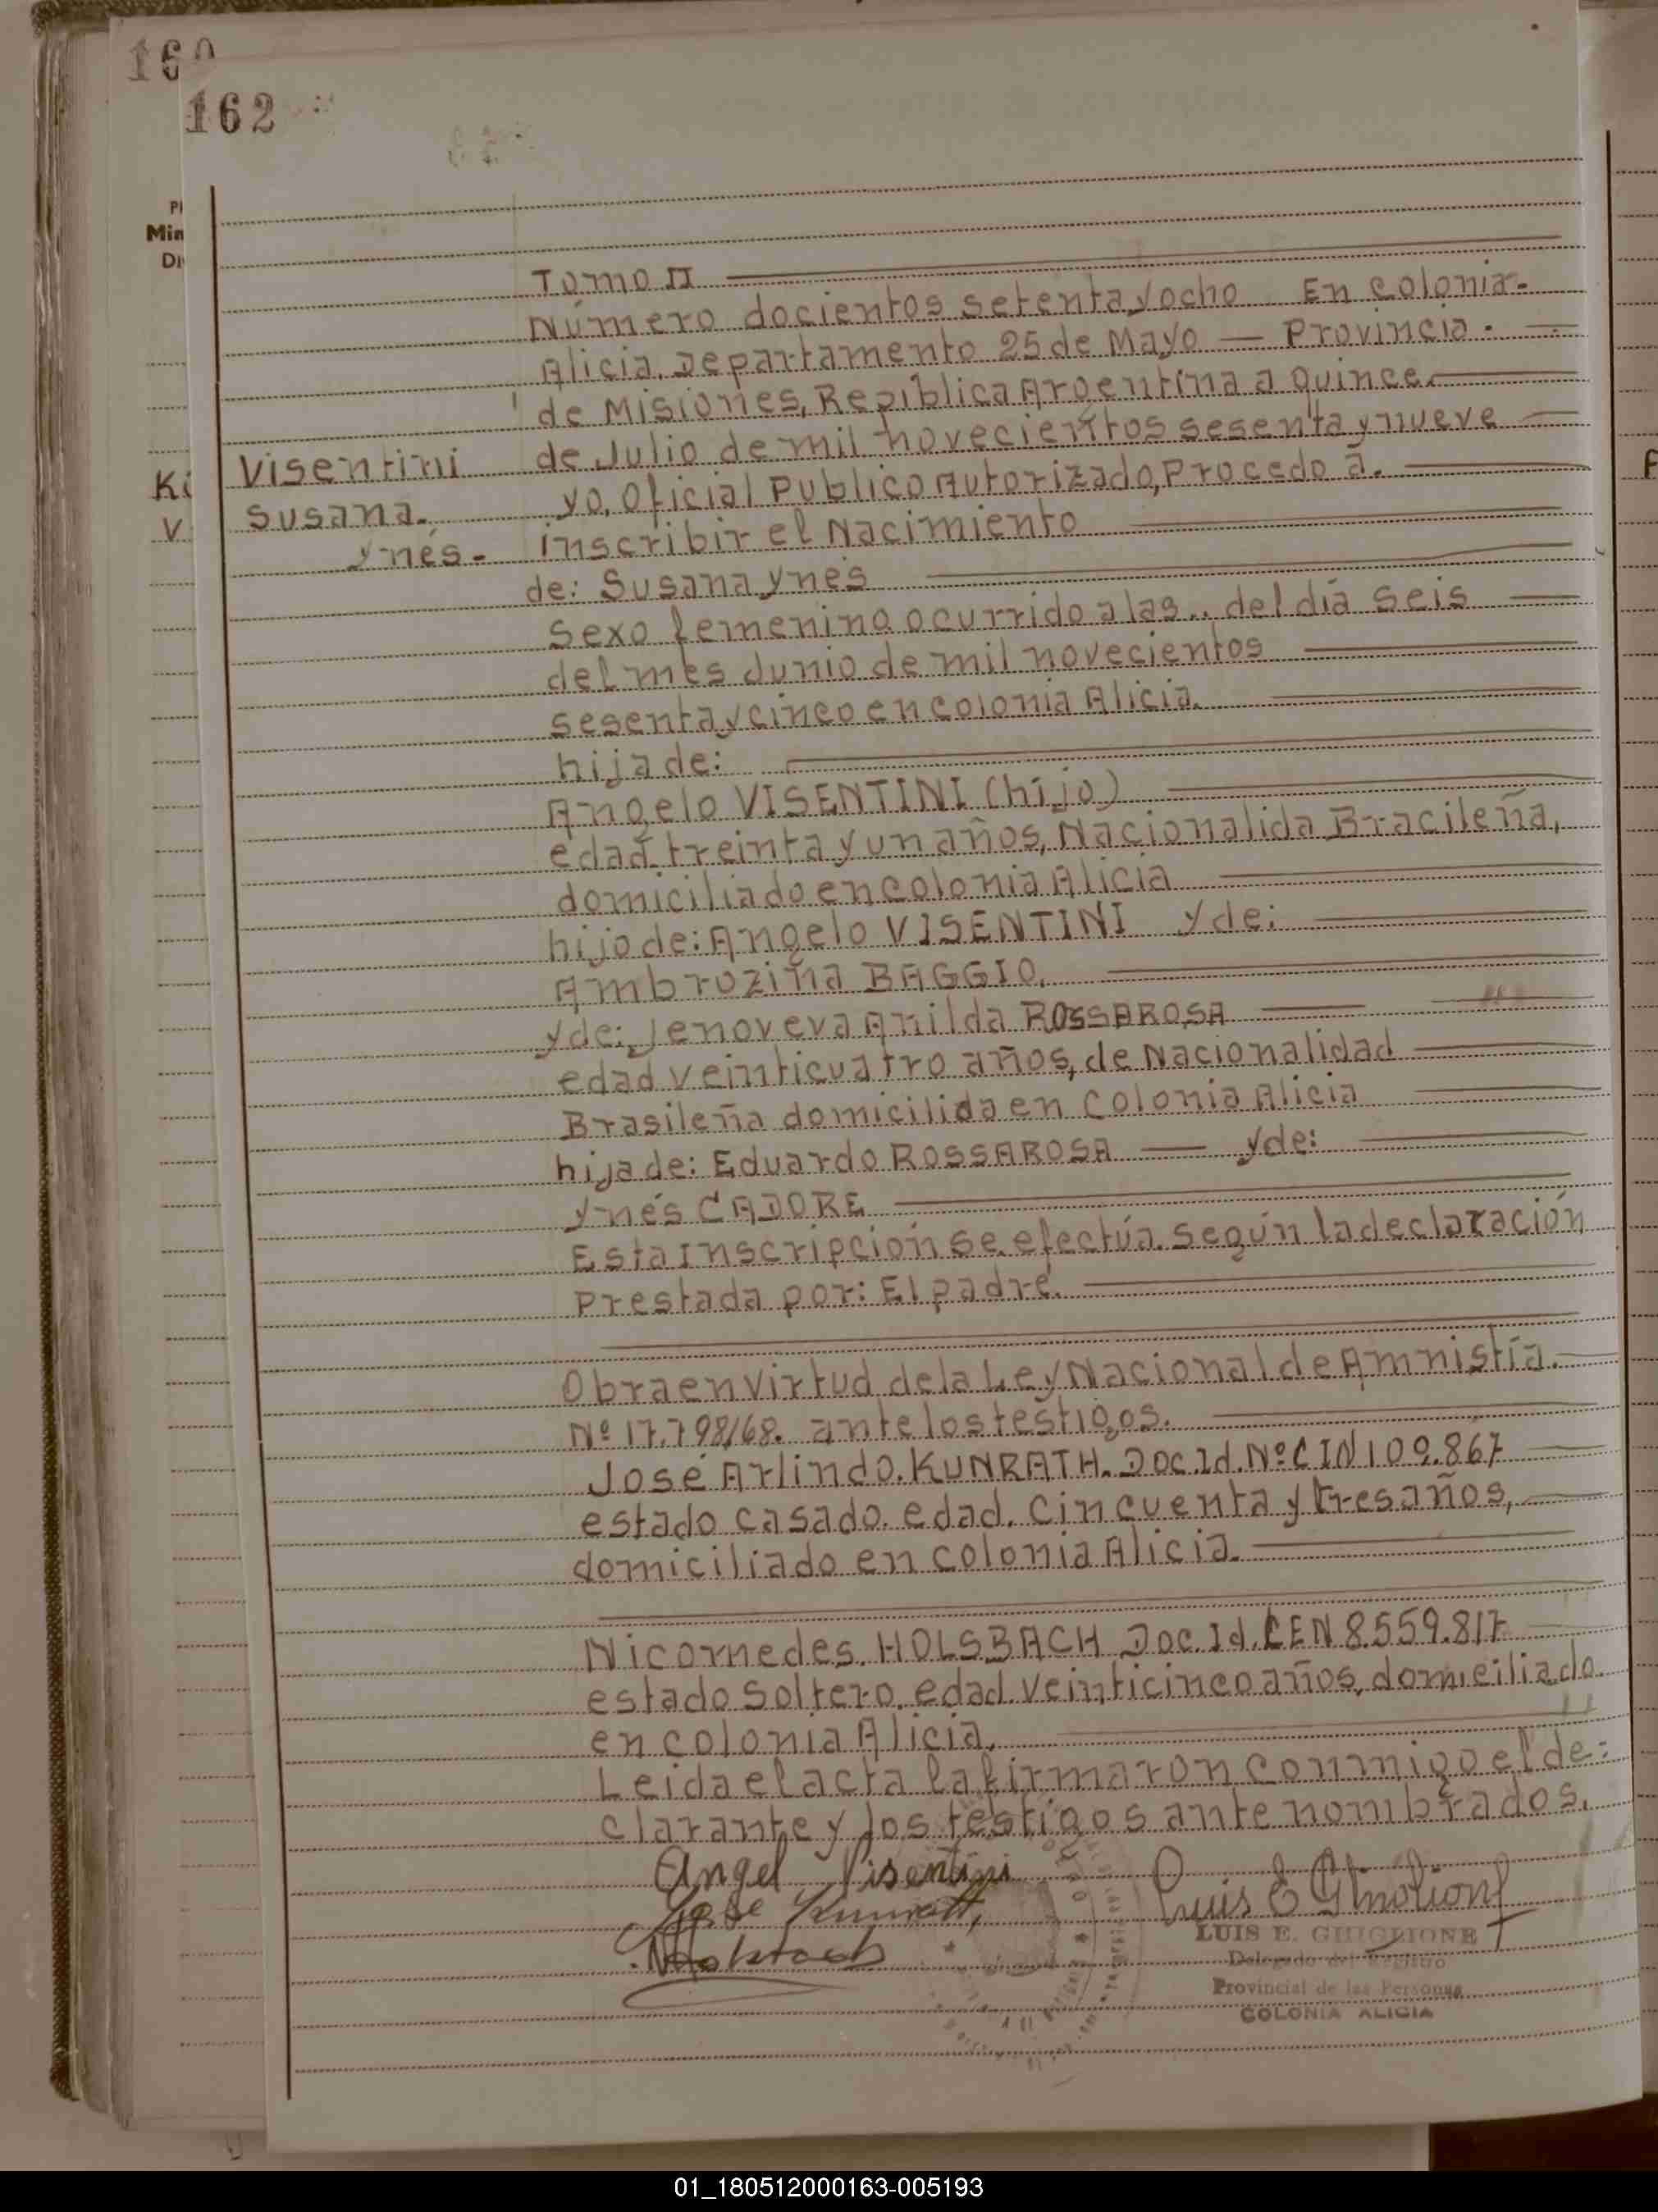 160
162
Pl
Min
Di
Tomo II
Número docientos setenta y ocho En colonia-
Alicia, Departamento 25 de Mayo — Provincia.
de Misiones, Repíblica Argentina a quince
de Julio de mil novecientos sesenta y nueve
Ki
Visentini
yo, Oficial Publico Autorizado, Procedo á.
V
Susana.
inscribir el Nacimiento
ynés-
de: Susana ynés
sexo femenino ocurrido a las.. del día seis
del mes Junio de mil novecientos
sesenta y cinco en colonia Alicia.
hija de:
Angelo VISENTINI (hijo)
edad treinta y un años, Nacionalida Bracileña,
domiciliado en colonia Alicia
hijo de: Angelo VISENTINI y de:
Ambroziña BAGGIO,
y de: Jenoveva Anilda ROSSAROSA
edad veinticuatro años, de Nacionalidad
Brasileña domicilida en colonia Alicia
hija de: Eduardo ROSSAROSA — y de:
ynés CADORE
Esta Inscripción se efectúa según la declaración
Prestada por: El padre.
Obra en virtud de la Ley Nacional de Amnistía.
Nº 17.798/68. ante los testigos.
José Arlindo. KUNRATH. Doc. Id. Nº CIN 109.867
estado casado. edad. cincuenta y tres años,
domiciliado en colonia Alicia.
Nicomedes. HOLSBACH Doc. Id. CEN 8.559.817
estado soltero. edad. veinticinco años, domiciliado
en colonia Alicia,
Leida el acta la firmaron conmigo el de=
clarante y los testigos ante nombrados.
Angel Visentini
Jose Kunrath
LUIS E. GHIGLIONE
Delegado del Registro
Provincial de las Personas
COLONIA ALICIA
01_180512000163-005193